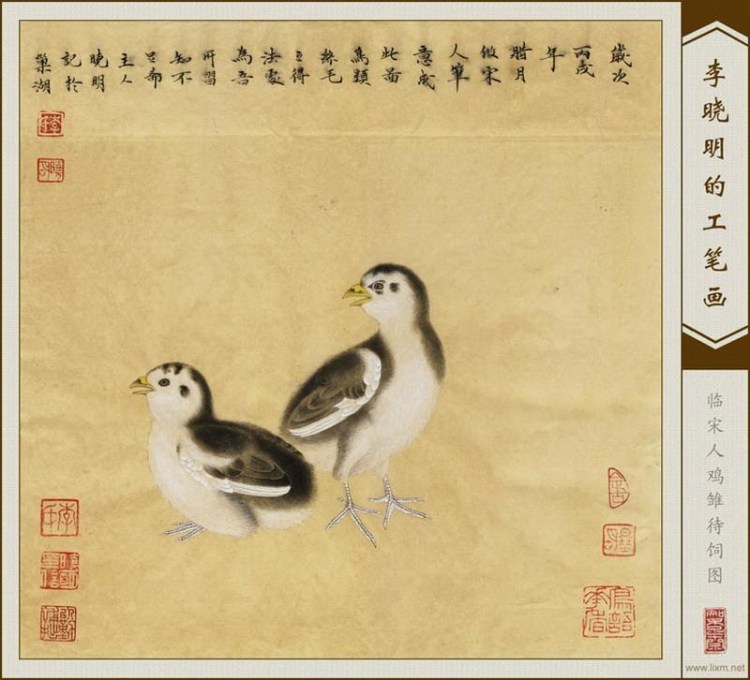 歲次
丙戌
年
腊月
倣宋
人筆
意成
此畨
鳥類
絲毛
之得
法處
為吾
所習
知不
足齋
主人
晓明
記於
巢湖
李晓明的工笔画
临宋人鸡雏待饲图
www.lixm.net